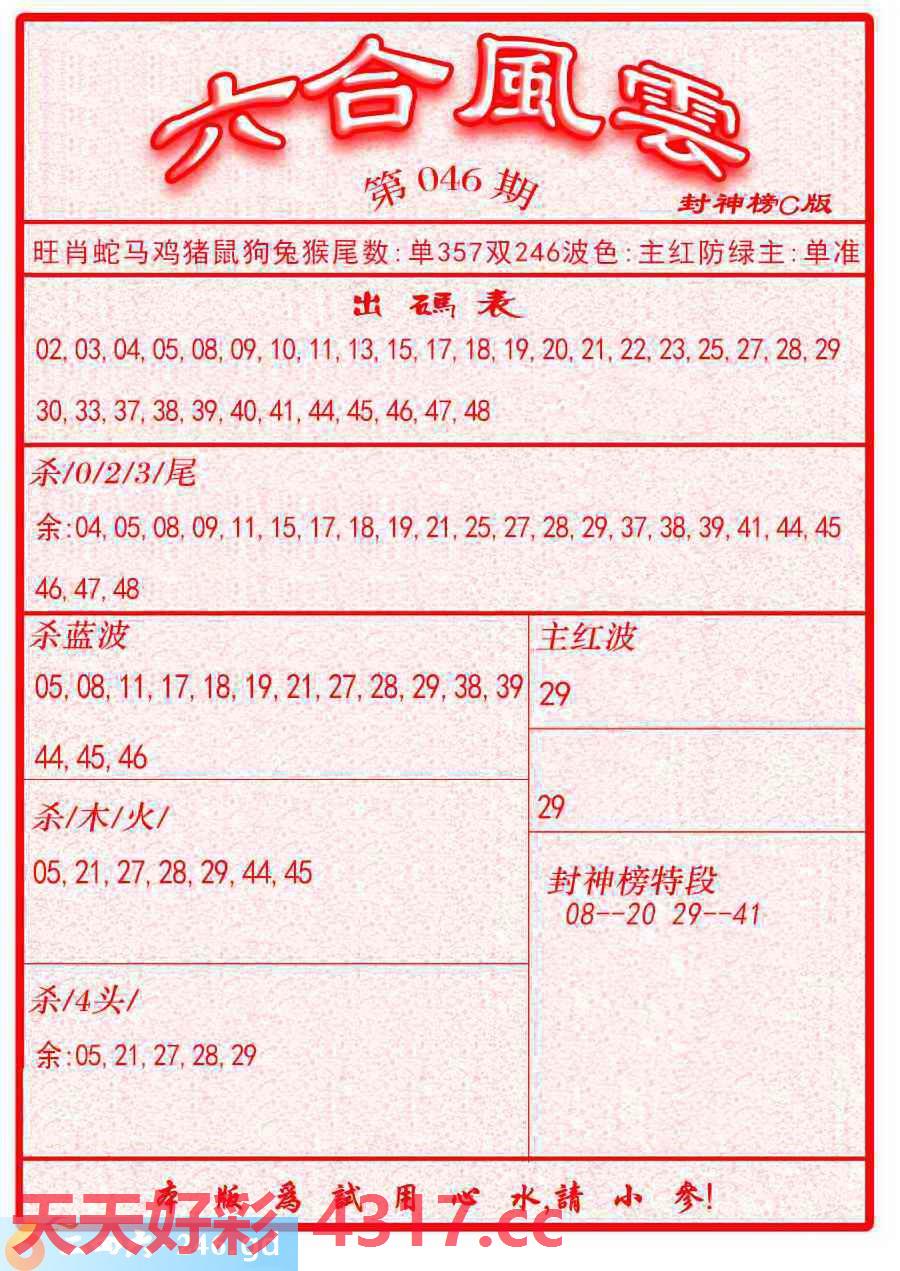 六合風雲
第046期
封神榜C版
旺肖蛇马鸡猪鼠狗兔猴尾数:单357双246波色:主红防绿主:单准
出碼表
02,03,04,05,08,09,10,11,13,15,17,18,19,20,21,22,23,25,27,28,29
30,33,37,38,39,40,41,44,45,46,47,48
杀/0/2/3/尾
余:04,05,08,09,11,15,17,18,19,21,25,27,28,29,37,38,39,41,44,45
46,47,48
杀蓝波
05,08,11,17,18,19,21,27,28,29,38,39
44,45,46
主红波
29
29
杀/木/火/
05,21,27,28,29,44,45
封神榜特段
08--20 29--41
杀/4头/
余:05,21,27,28,29
本版爲試用心水,請小參!
天天好彩 4317.cc
246.gd